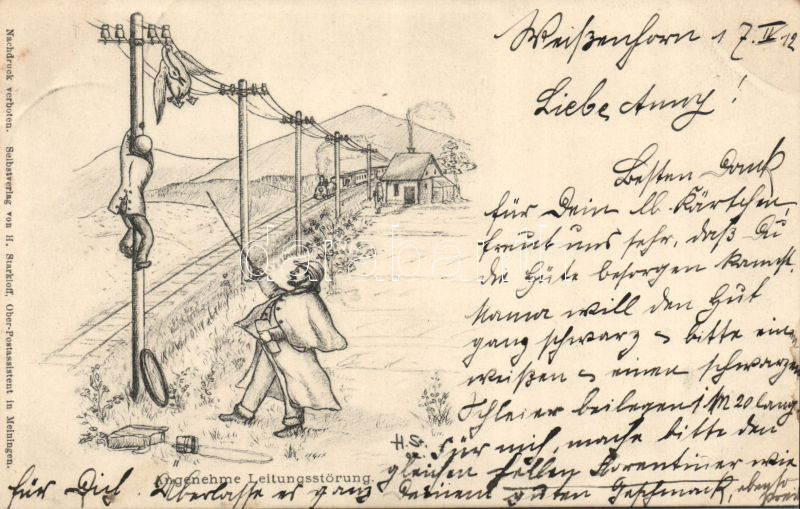 Weißenhorn 17. IV. 12
Liebe Anny!
Besten Dank
für Dein lb. Kärtchen,
freut uns sehr, daß Du
die Hüte besorgen kannst.
Mama will den Hut
ganz schwarz u bitte ein
weißen u einen schwarzen
Schleier beilegen 1 M 20 lang
Für mich mache bitte den
gleichen hellen Florentiner wie
für Dich. Überlasse es ganz Deinem guten Geschmack, ebenso
Preis
H. St.
Angenehme Leitungsstörung.
Nachdruck verboten. Selbstverlag von H. Starkloff, Ober-Postassistent in Meiningen.
darabanth.com